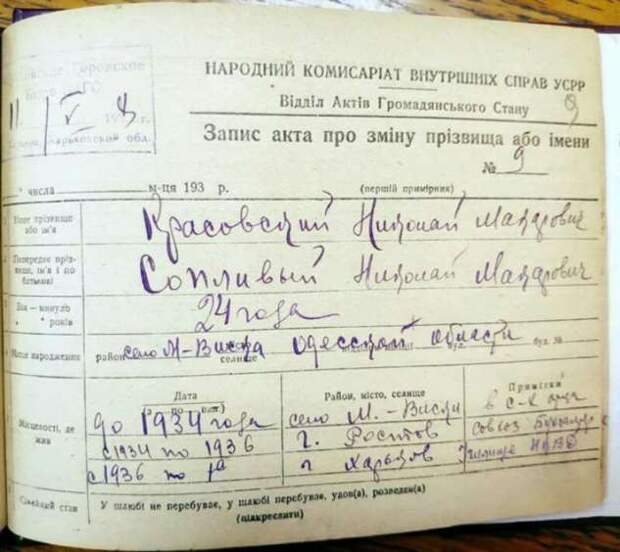 Городское
ЗАГС
11 V 193 8 г.
Харьковской обл.
НАРОДНИЙ КОМИСАРІАТ ВНУТРІШНІХ СПРАВ УСРР
Відділ Актів Громадянського Стану
Запис акта про зміну прізвища або імени
№ 9
" числа м-ця 193 р. (перший примірник)
прізвище або ім'я
Красовский Николай Макарович
Попереднє прізвище, ім'я і по батькові
Сопливый Николай Макарович
Вік — минуло років
24 года
Місце народження район село М-Виска селище Одесской области вул. буд. №
Місцевості, де жив
Дата
(з по )
Район, місто, селище
Примітки
до 1934 года село М.-Виски в с-х
с 1934 по 1936 г. Ростов
с 1936 по г Харьков Училище НКВД
Сімейний стан
У шлюбі не перебував, у шлюбі перебував, удов(а), розведен(а)
(підкреслити)